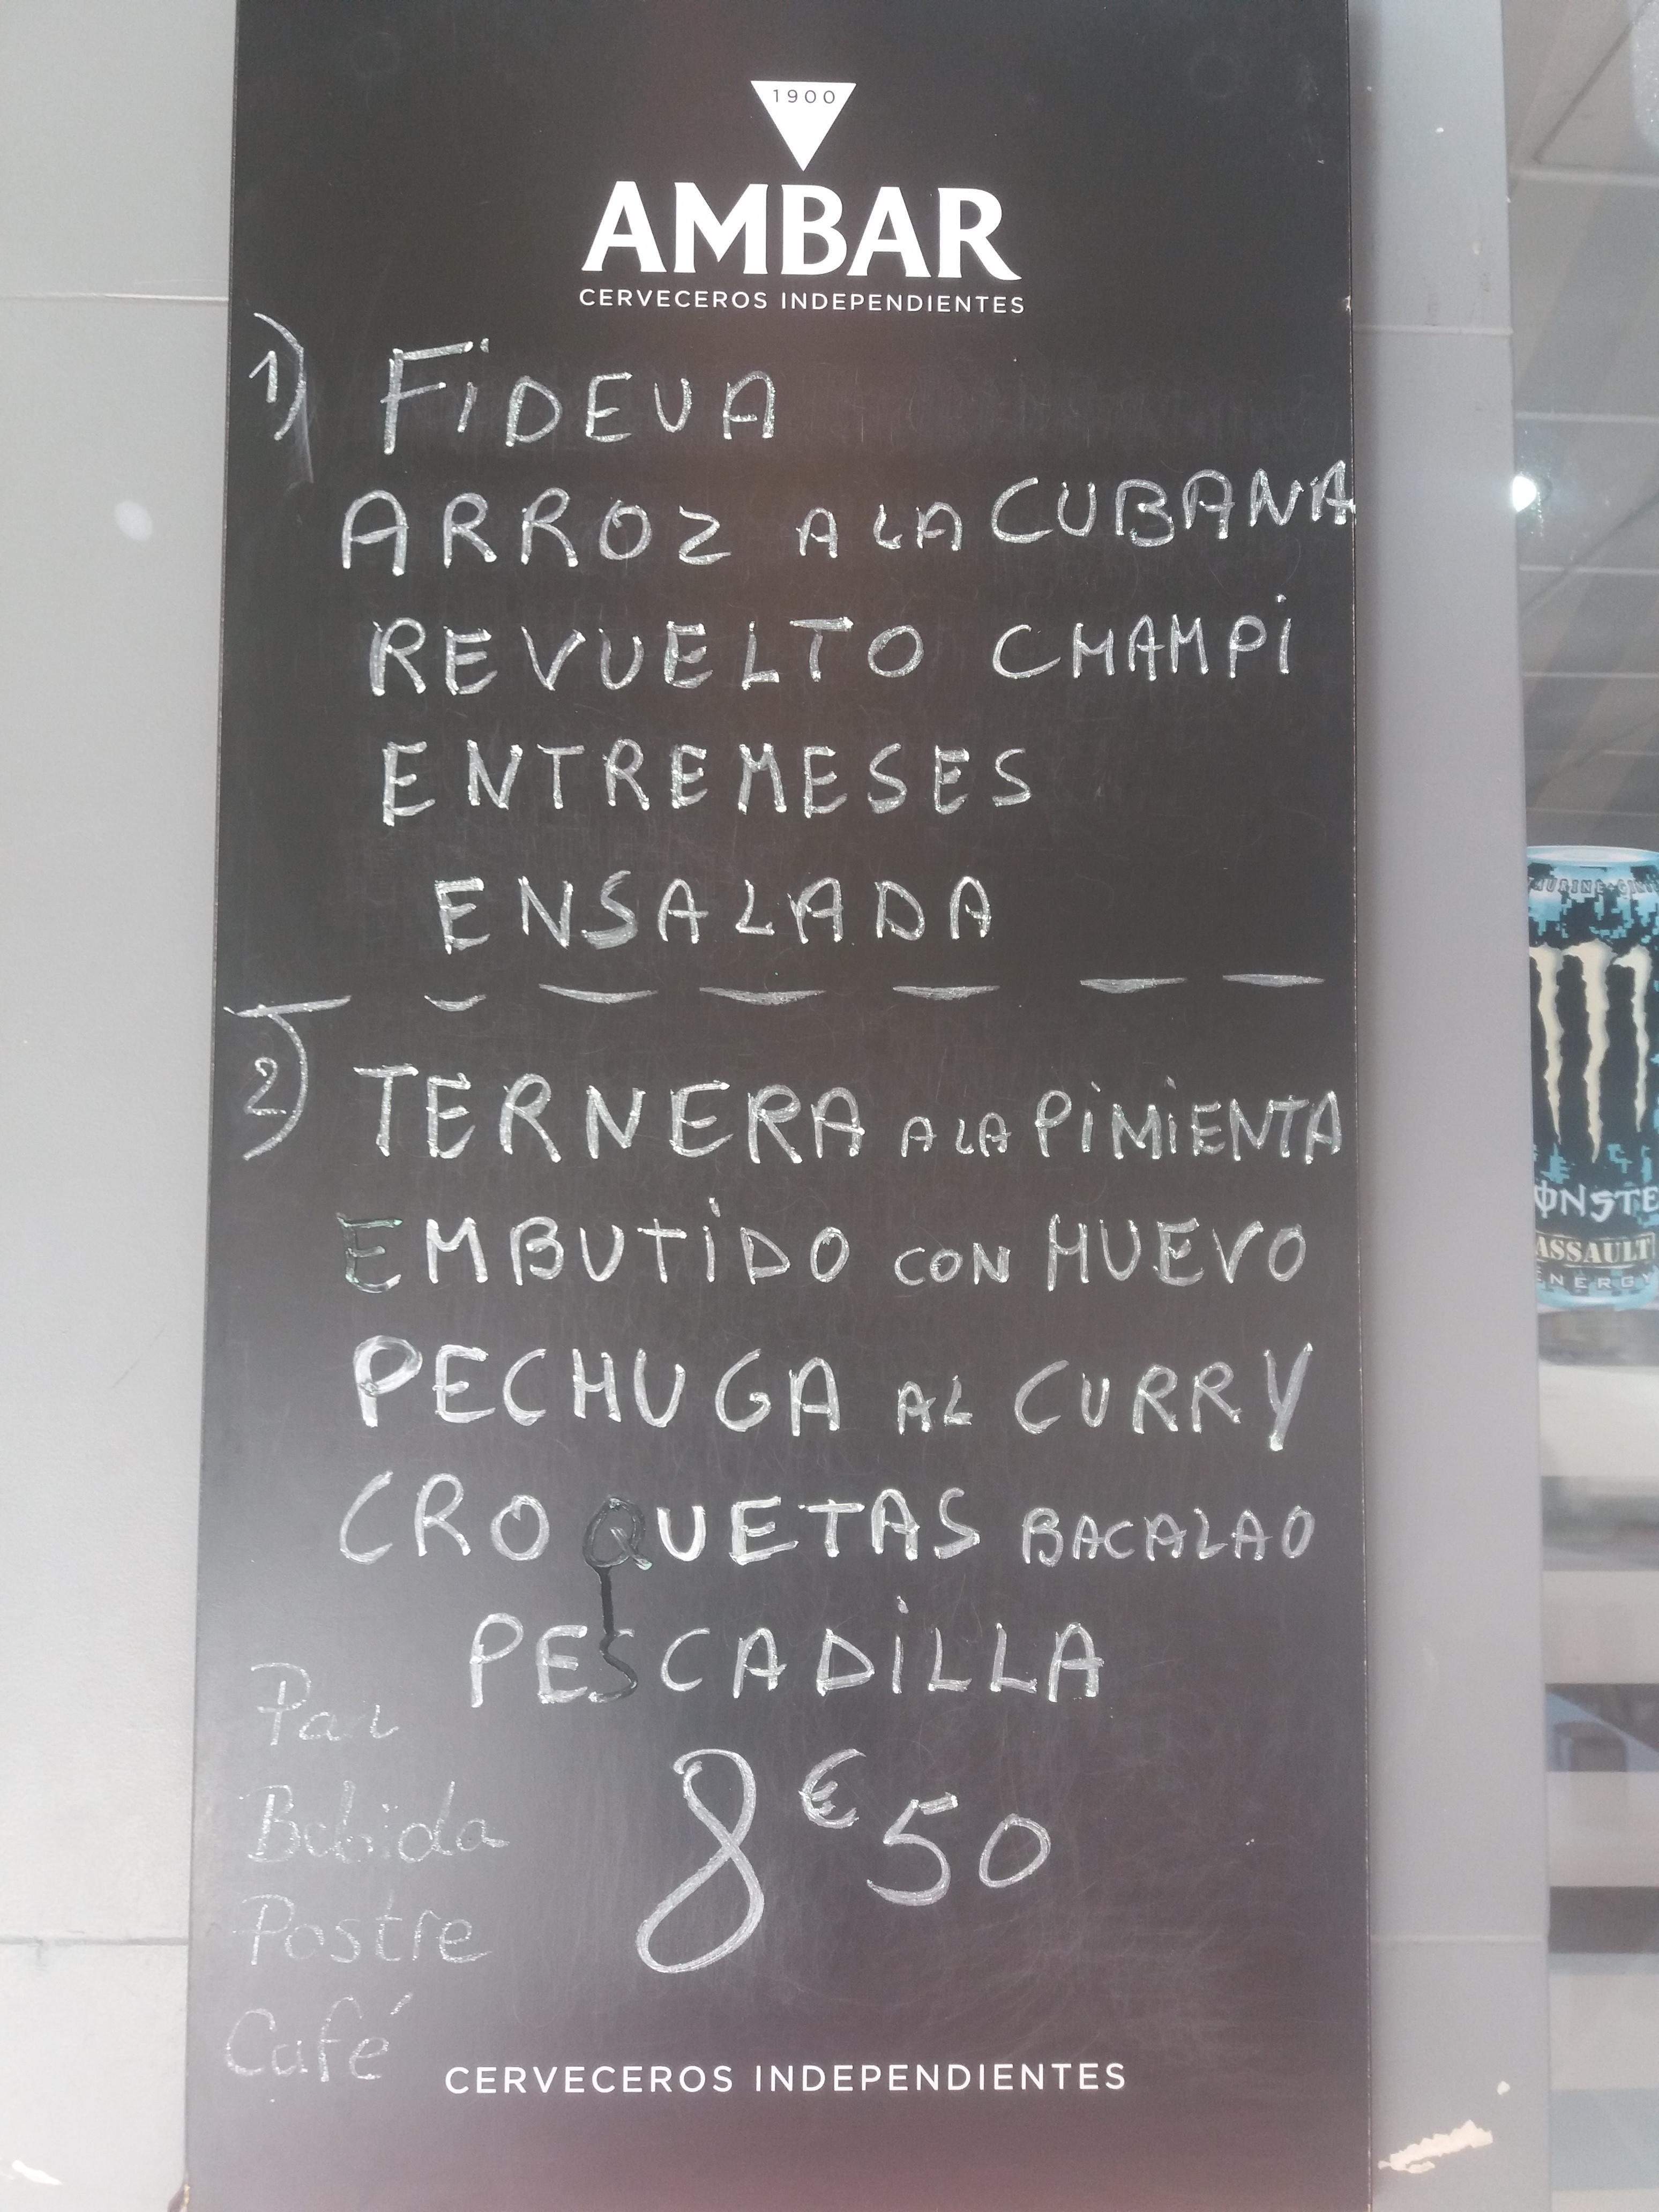 1900
AMBAR
CERVECEROS INDEPENDIENTES
1) FiDEUA
ARROZ A LA CUBANA
REVUELTO CHAMPi
ENTREMESES
ENSALADA
2) TERNERA A LA PiMiENTA
EMBUTiDO CON HUEVO
PECHUGA AL CURRY
CROQUETAS BACALAO
PESCADiLLA
Pan
Bebida
Postre
Café
8€50
CERVECEROS INDEPENDIENTES
ASSAULT
ENERGY